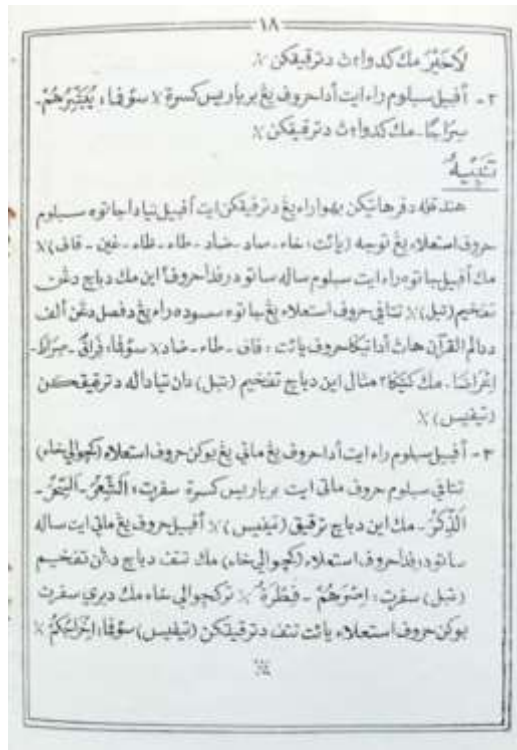 ١٨
لَاخَيْرَ مك كدوا٢ث دترقيقكن ⁒
٢ - أفبيل سبلوم راء ايت أدا حروف يڠ برباريس كسرة ⁒ سڤرت، يُبَشِّرُهُمْ -
سِرَاجًا - مك كدوا٢ث دترقيقكن ⁒
تَنْبِيهٌ
هندقله دڤرهاتيكن بهوا راء يڠ دترقيقكن ايت أفبيل تيادا جاتوه سبلوم
حروف استعلاء يڠ توجه (يائت: خاء - صاد - ضاد - طاء - ظاء - غين - قاف) ⁒
مك أفبيل جاتوه راء ايت سبلوم ساله ساتو درفدا حروف٢ اين مك دباچ دڠن
تفخيم (تبل) ⁒ تتاڤي حروف استعلاء يڠ جاتوه سسوده راء يڠ دفصل دڠن ألف
ددالم القرآن هاث أدا تيڬ حروف يائت: قاف - طاء - ضاد ⁒ سڤرت، فِرَاقُ - صِرَاطَ -
إِعْرَاضًا - مك كتيڬ٢ مثال اين دباچ تفخيم (تبل) دان تيادله دترقيقكن
(تيفيس) ⁒
٣ - أفبيل سبلوم راء ايت أدا حروف يڠ ماتي يڠ بوكن حروف استعلاء (كچوالي خاء)
تتاڤي سبلوم حروف ماتي ايت برباريس كسرة سڤرت: اَلشِّعْرَ - اَلسِّحْرَ -
اَلذِّكْرَ - مك اين دباچ ترقيق (تيفيس) ⁒ أفبيل حروف يڠ ماتي ايت ساله
ساتو درفدا حروف استعلاء (كچوالي خاء) مك تتف دباچ دڠن تفخيم
(تبل) سڤرت: اِصْرَهُمْ - فِطْرَةَ ⁒ تركچوالي خاء مك دبري سڤرت
بوكن حروف استعلاء يائت تتف دترقيقكن (تيفيس) سڤرت، اِخْرَاجُكُمْ ⁒